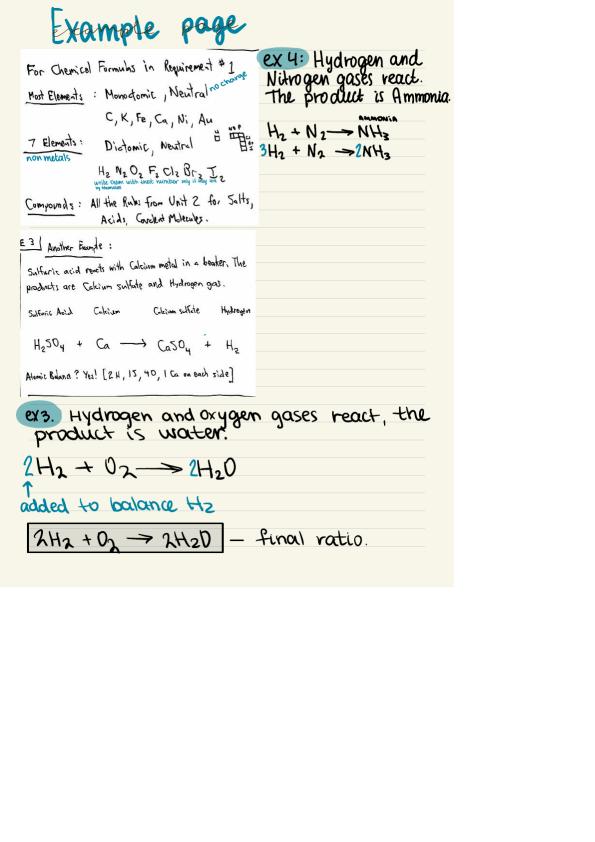 Example page
For Chemical Formulas in Requirement #1
Most Elements : Monotomic, Neutral no charge
C, K, Fe, Ca, Ni, Au
7 Elements : Diatomic, Neutral
non metals
H₂ N₂ O₂ F₂ Cl₂ Br₂ I₂
write them with their number only if they are
by themselves
Compounds : All the Rules from Unit 2 for Salts,
Acids, Covalent Molecules.
E 3 Another Example :
Sulfuric acid reacts with Calcium metal in a beaker. The
products are Calcium sulfate and Hydrogen gas.
Sulfuric Acid Calcium Calcium sulfate Hydrogen
H₂SO₄ + Ca ⟶ CaSO₄ + H₂
Atomic Balance? Yes! [2H, 1S, 4O, 1 Ca on each side]
ex 4: Hydrogen and
Nitrogen gases react.
The product is Ammonia.
AMMONIA
H₂ + N₂ ⟶ NH₃
3H₂ + N₂ → 2NH₃
ex3. Hydrogen and oxygen gases react, the
product is water.
2H₂ + O₂ ⟶ 2H₂O
↑
added to balance H₂
2H₂ + O₂ → 2H₂O — final ratio.